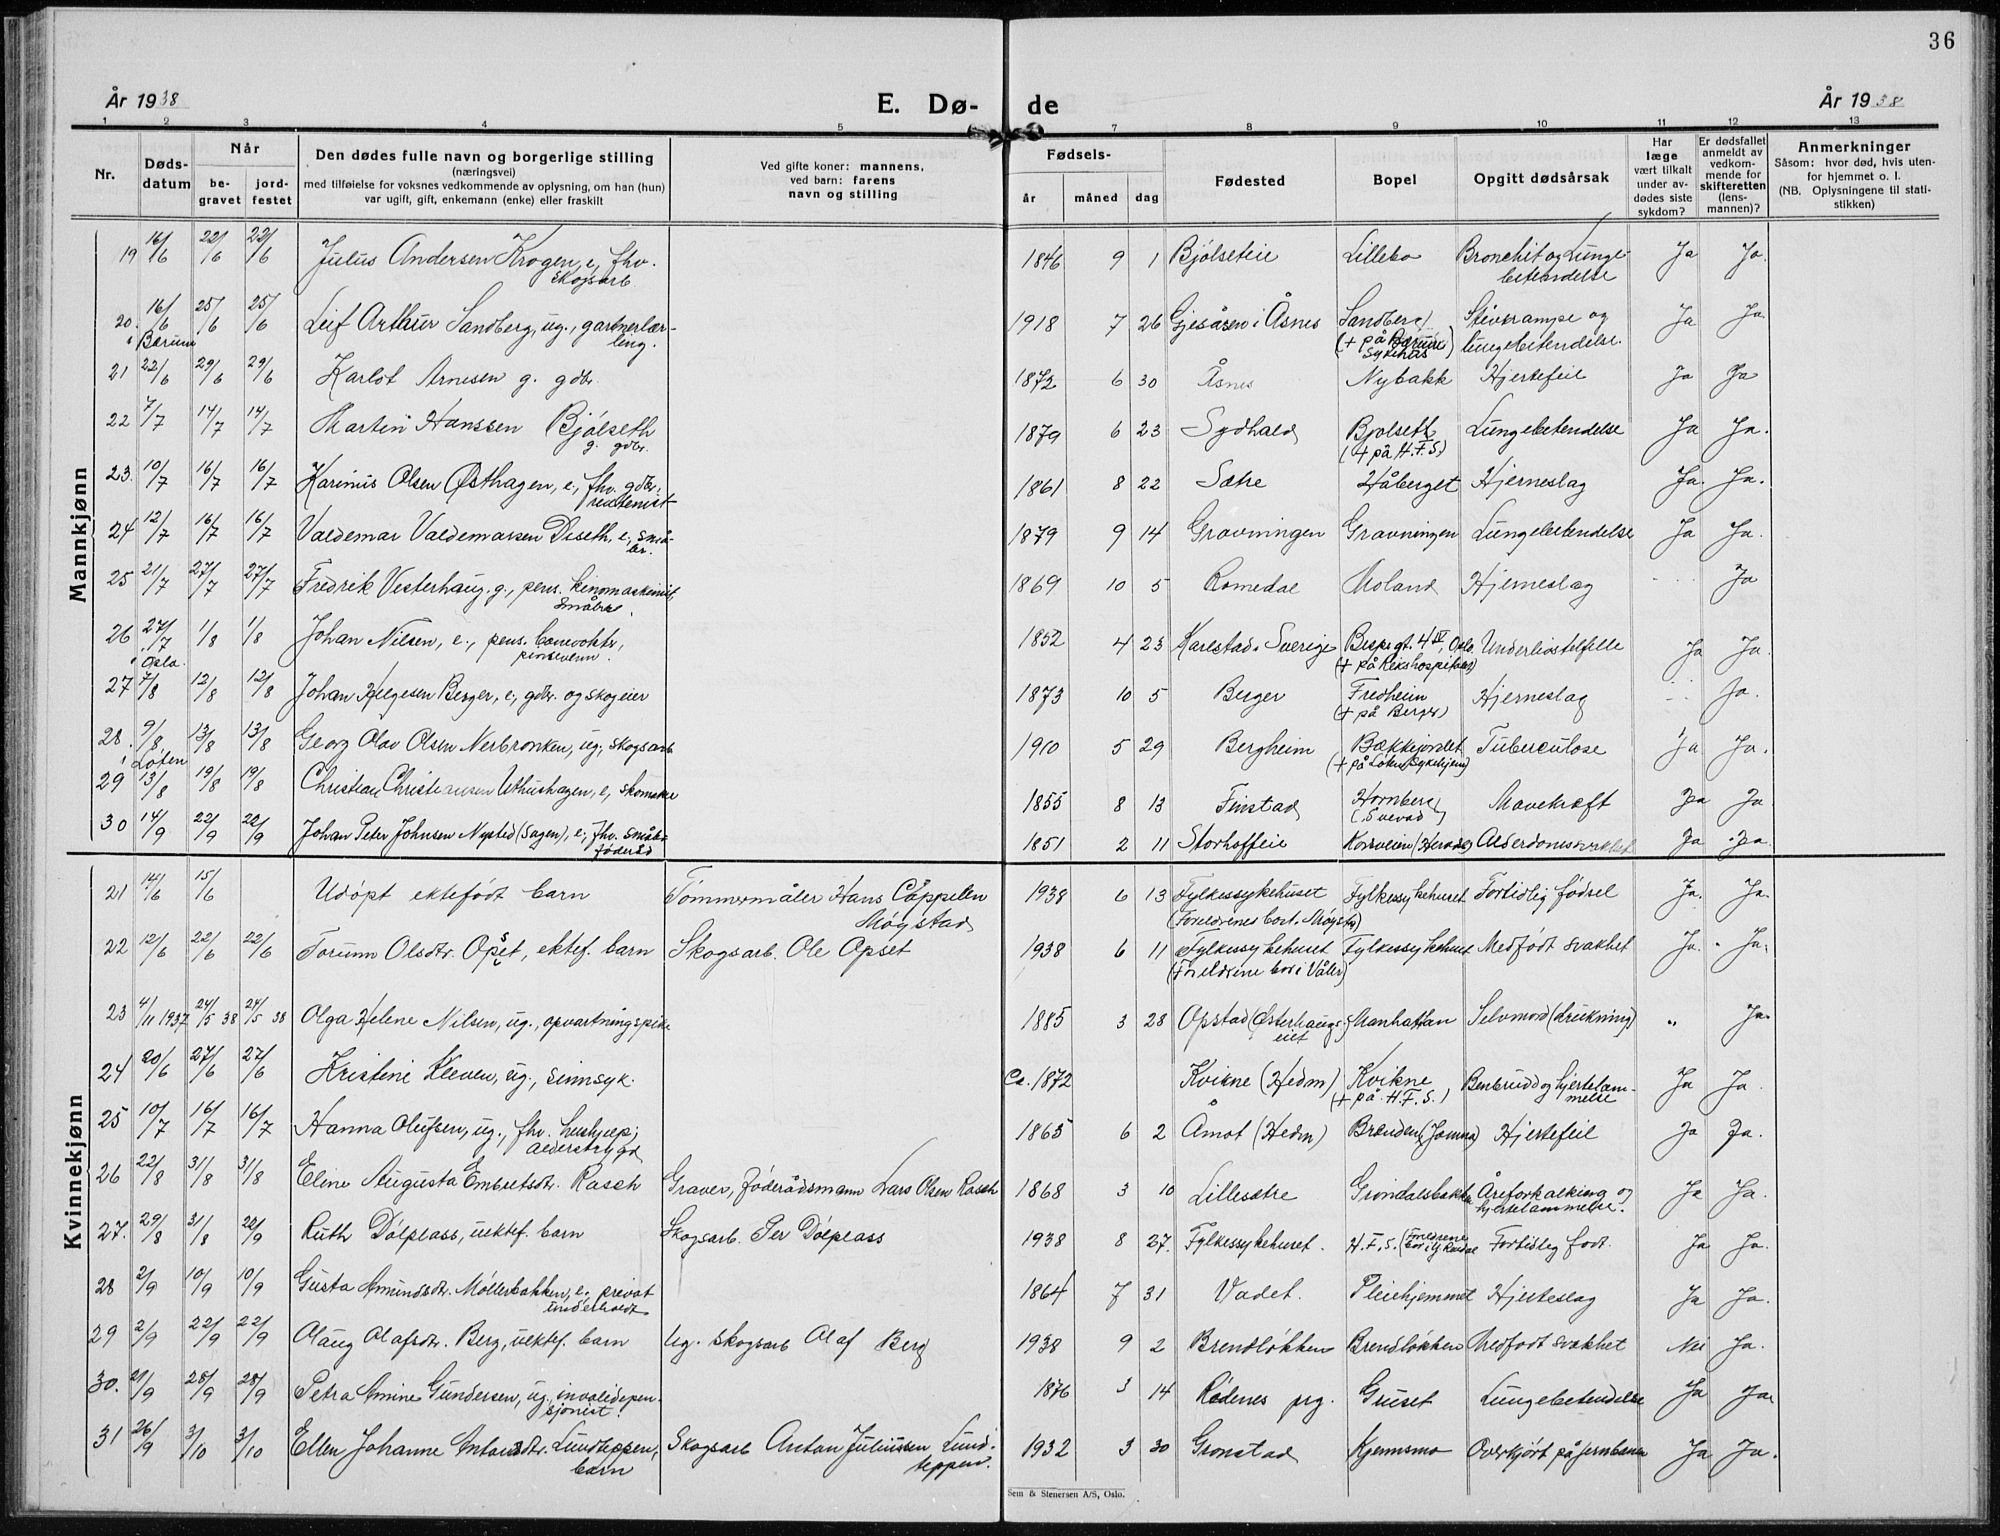 36
År 1938
E. Dø- de
År 1938
1 2 3 4 5 7 8 9 10 11 12 13
Nr.
Døds-
datum
Når
be-
gravet
jord-
festet
Den dødes fulle navn og borgerlige stilling
(næringsvei)
med tilføielse for voksnes vedkommende av oplysning, om han (hun)
var ugift, gift, enkemann (enke) eller fraskilt
Ved gifte koner: mannens,
ved barn: farens
navn og stilling
Fødsels-
år måned dag
Fødested
Bopel
Opgitt dødsårsak
Har
læge
vært tilkalt
under av-
dødes siste
sykdom?
Er dødsfallet
anmeldt av
vedkom-
mende for
skifteretten
(lens-
mannen)?
Anmerkninger
Såsom: hvor død, hvis uten-
for hjemmet o. l.
(NB. Oplysningene til stati-
stikken)
Mannkjønn
19 16/6 22/6 22/6 Julus Andersen Krogen, e, fhv. 1846 9 1 Bjølseteie Lillebo Bronchit og Lunge- Ja Ja.
skogsarb betendelse
20. 16/6 25/6 25/6 Leif Arthur Sandberg, ug., gartnerlær- 1918 7 26 Gjesåsen i Åsnes Sandberg Stivkrampe og Ja Ja.
i Bærum ling. (+ på Bærum Sykehus) lungebetendelse.
21 22/6 29/6 29/6 Karlot Arnesen g. gdbr. 1872 6 30 Åsnes Nybakk Hjertefeil Ja Ja
22 7/7 14/7 14/7 Martin Hanssen Bjølseth 1879 6 23 Sydhald Bjølseth Lungebetendelse Ja Ja.
g. gdbr. (+ på H.F.S.)
23. 10/7 16/7 16/7 Karinius Olsen Østhagen, e., fhv. gdbr. 1861 8 22 Sætre Håberget Hjerneslag Ja. Ja.
24 12/7 16/7 16/7 Valdemar Valdemarsen Diseth, e., små- 1879 9 14 Gravningen Gravningen Lungebetendelse Ja Ja.
br.
25 21/7 27/7 27/7 Fredrik Vesterhaug. g., pens. kinomaskinist, 1869 10 5 Romedal Moland Hjerneslag Ja
småbr.
26 27/7 1/8 1/8 Johan Nilsen, e., pens. banevokter, 1852 4 23 Karlstad, Sverige Bispegt. 4 IV, Oslo. Underlivslidelse Ja Ja.
i Oslo. (+ på Rikshospitalet)
27 7/8 12/8 12/8 Johan Helgesen Berger, e., gdbr. og skogeier 1873 10 5 Berger Fredheim Hjerneslag Ja.
(+ på Berger)
28. 9/8 13/8 13/8 Georg Olav Olsen Nerbronken, ug., skogsarb 1910 5 29 Bergheim Bækkejordet Tuberculose Ja Ja.
i Løten (+ på Løten Sykehjem)
29 13/8 19/8 19/8 Christian Christiansen Uthushagen, e, skomaker 1855 8 13 Finstad Hornberg Mavekræft Ja Ja
30 14/9 22/9 22/9 Johan Peter Johnsen Nysted (Sagen), e., fhv. småbr. 1851 2 11 Storhoffeie Korsveien (Heradsb) Alderdomssvakhet Ja Ja
føderåd
Kvinnekjønn
21 14/6 15/6 Udøpt ektefødt barn Tømmermåler Hans Cappelen 1938 6 13 Fylkessykehuset Fylkessykehuset Fortidlig fødsel Ja. Ja.
Møystad (Foreldrenes bost. Møystad)
22 12/6 22/6 22/6 Torunn Olsdtr. Opset, ektef. barn Skogsarb. Ole Opset 1938 6 11 Fylkessykehuset Fylkessykehuset Medfødt svakhet Ja. Ja.
(Foreldrene bor i Våler)
23 4/11 1937 24/5 38 24/5 38 Olga Helene Nilsen, ug., opvartningspike 1885 3 28 Opstad (Østerhaugs- Manhattan Selvmord (drukning) " Ja.
eiet
24 20/6 27/6 27/6 Kristine Kleven, ug., sinnsyk. Ca. 1872 Kvikne (Hedm) Kvikne Benbrudd og hjertelam- Ja Ja.
(+ på H.F.S.) melse
25 10/7 16/7 16/7 Hanna Olufsen, ug., fhv. hushjelp, 1865 6 2 Åmot (Hedm) Brænden (Jømna) Hjertefeil Ja Ja.
alderstrygd
26 22/8 31/8 31/8 Eline Augusta Embretsdtr. Rasch Graver, føderådsmann Lars Olsen Rasch 1868 3 10 Lillesætre Grøndalsbakken Åreforkalking og Ja Ja.
hjertelammelse.
27. 29/8 31/8 20/9 Ruth Dølplass, uektef. barn Skogsarb. Per Dølplass 1938 8 27. Fylkessykehuset. H.F.S. Fortidlig født. Ja Ja.
28 2/9 10/9 10/9 Gusta Amundsdtr. Møllerbakken, e., privat 1864 7 31 Vadet. Pleiehjemmet Hjerteslag Ja Ja.
underholdt
29 2/9 22/9 22/9 Olaug Olafsdtr. Berg, uektef. barn Ug. skogsarb Olaf Berg 1938 9 2 Brendløkken Brendløkken Medfødt svakhet Nei Ja.
30. 21/9 28/9 28/9 Petra Amine Gundersen, ug. invalidepen- 1876 3 14 Rødenes prg. Gruset Lungebetendelse Ja Ja
sjonist.
31 26/9 3/10 3/10 Ellen Johanne Antonsdtr. Lundteppen, Skogsarb Anton Juliussen Lund- 1932 3 30 Grønstad Kjernsmo Overkjørt på jernbane Ja Ja.
barn teppen.
Sem & Stenersen A/S, Oslo.